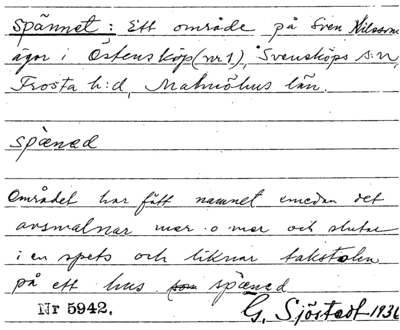 Spännet: Ett område på Sven Nilssons
ägor i Östensköp (nr 1), Svensköps s:n,
Frosta h:d, Malmöhus län.
spànad
Området har fått namnet emedan det
avsmalnar mer o mer och slutar
i en spets och liknar takstolen
på ett hus spànad
Nr 5942. G. Sjöstedt 1936